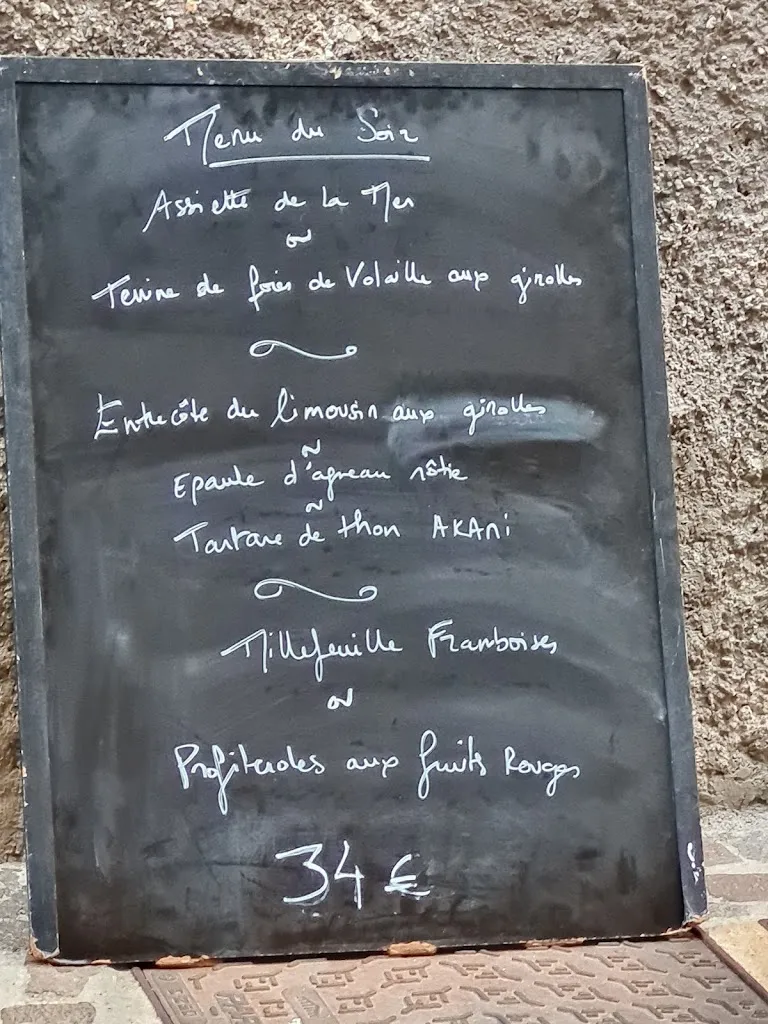 Menu du Soir
Assiette de la Mer
ou
Terrine de foies de Volaille aux girolles
Entrecôte du limousin aux girolles
~
Epaule d'agneau rôtie
~
Tartare de thon AKAMI
Millefeuille Framboises
ou
Profiteroles aux fruits Rouges
34 €